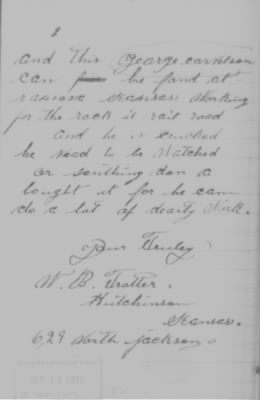 2
and this George carntson
can be fond at
ramona Kansas Working
for the rock il rail road
and he is
he need to be Watched
or somthing don a
bought it for he cam
do a lot of dearty Work.
Your Truley
W. B. Trotter.
Hutchinson
Kansas.
629 North jackson